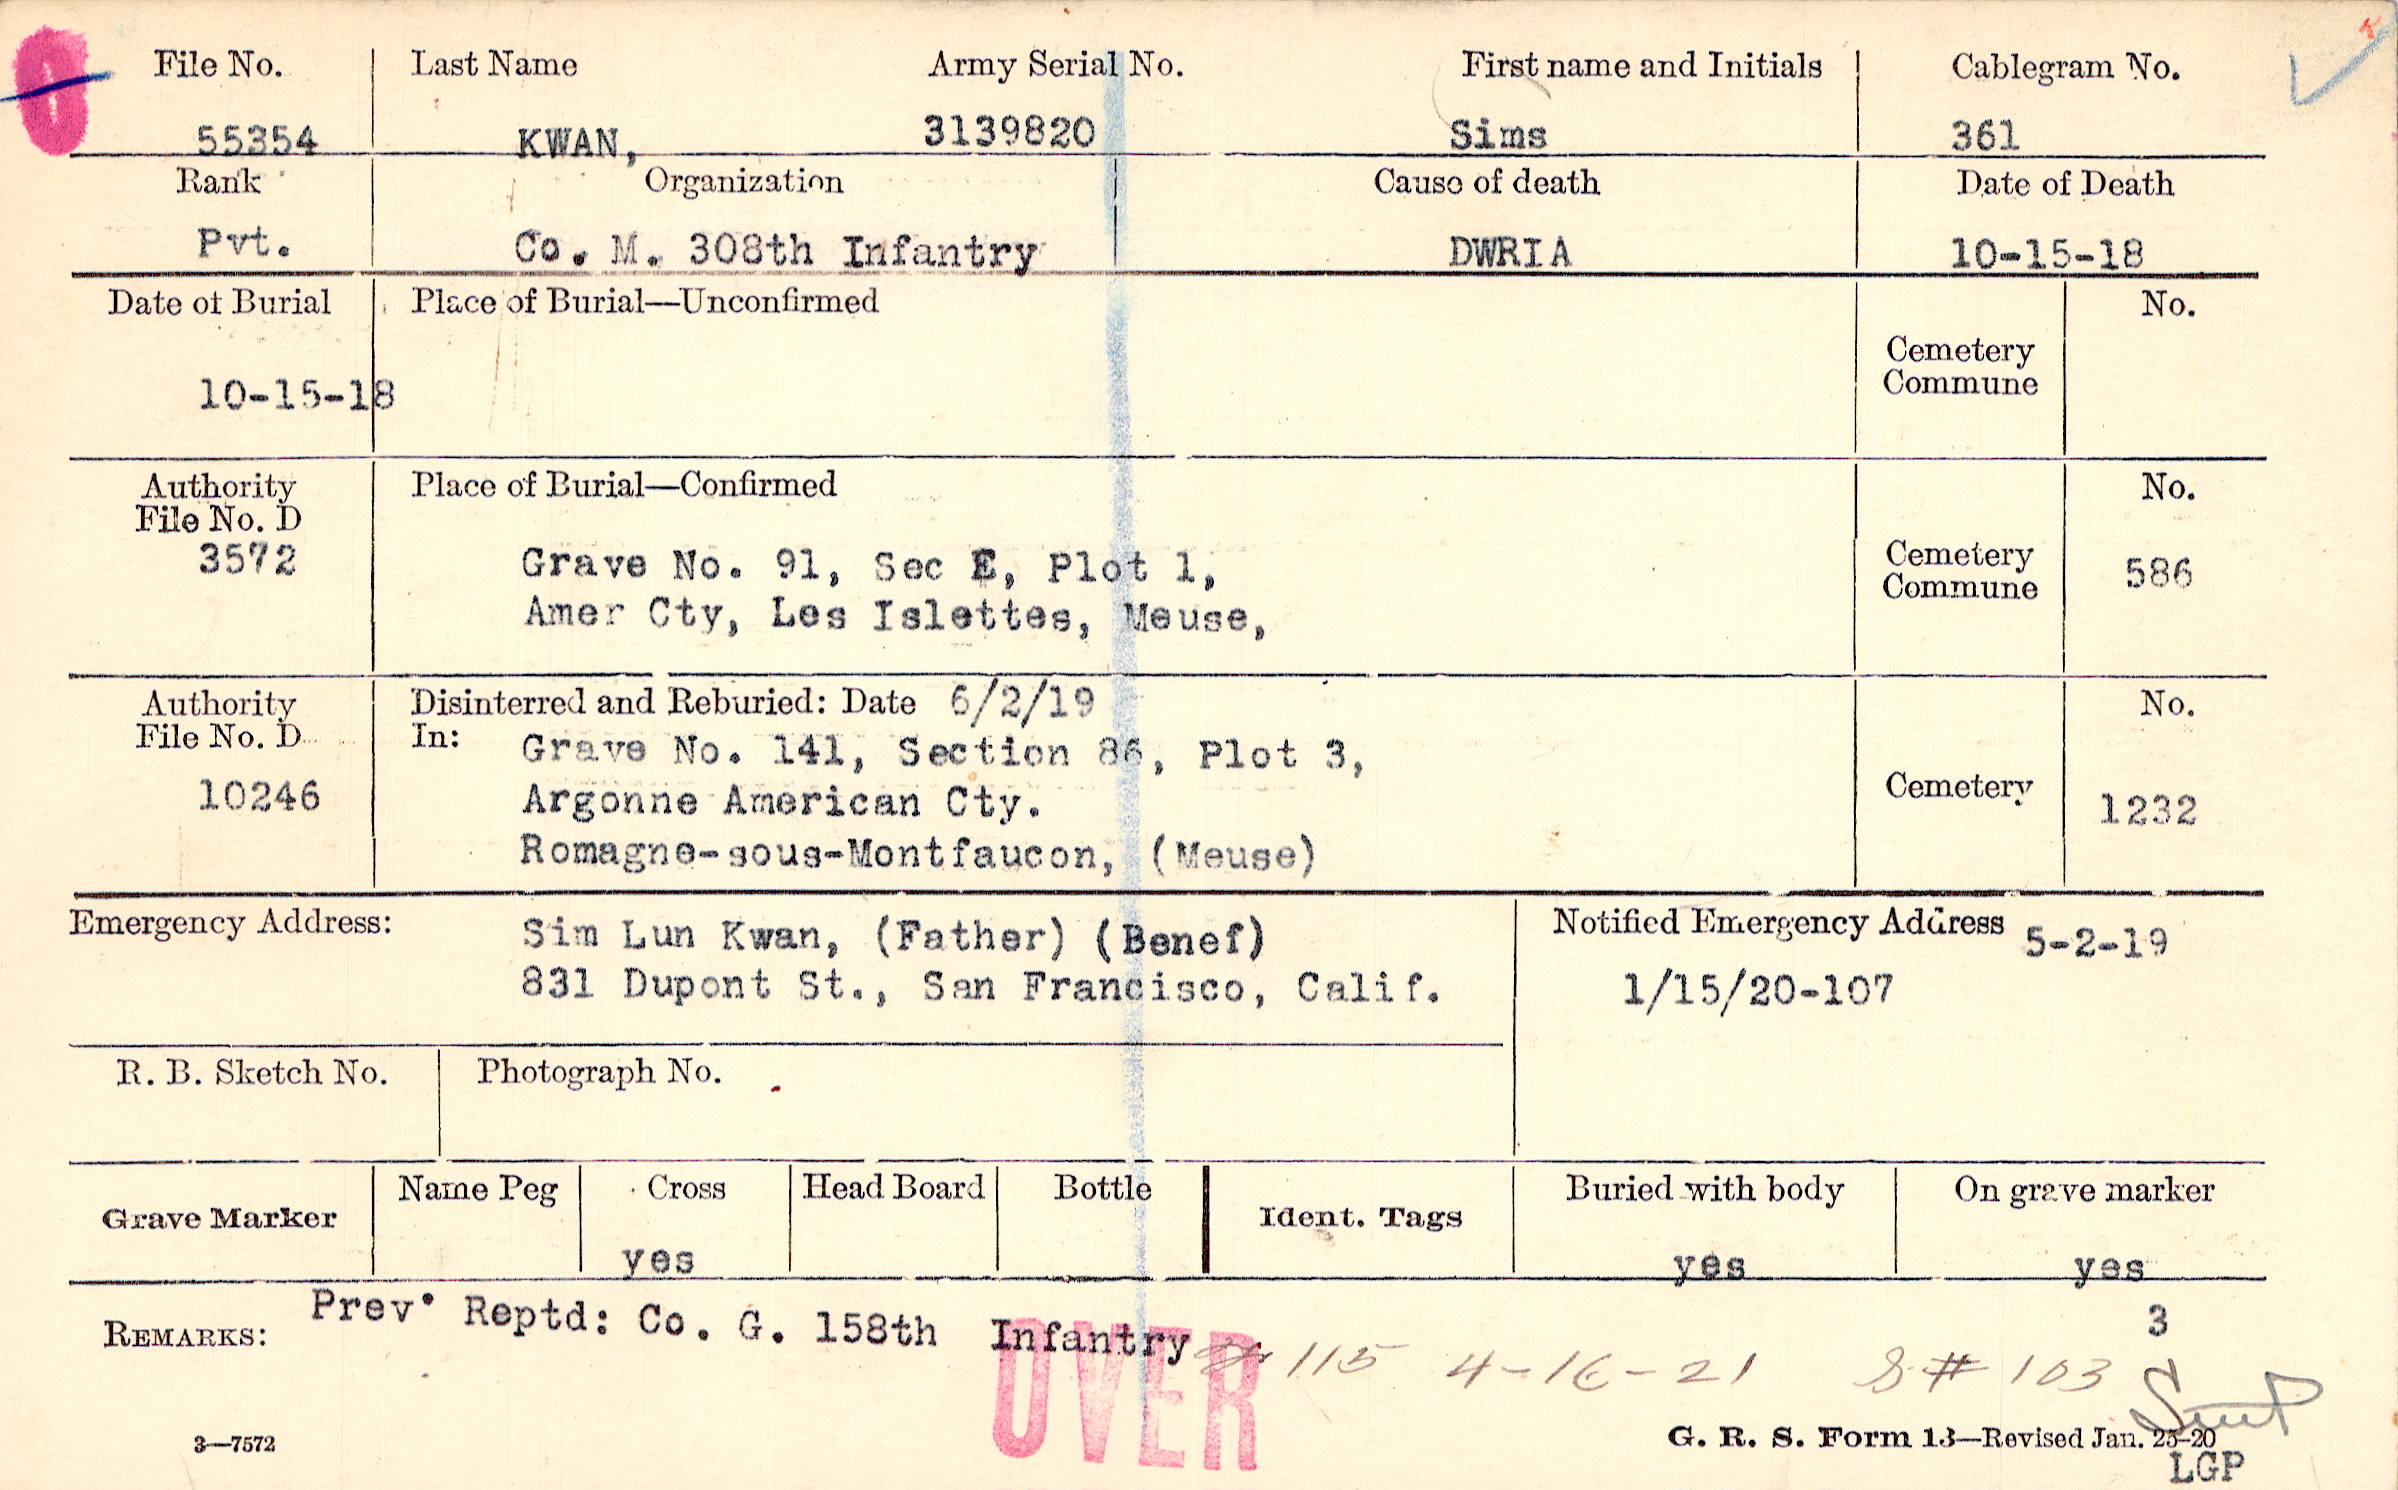 File No. Last Name Army Serial No. First name and Initials Cablegram No.
55354 KWAN, 3139820 Sims 361
Rank Organization Cause of death Date of Death
Pvt. Co. M. 308th Infantry DWRIA 10-15-18
Date of Burial Place of Burial—Unconfirmed No.
Cemetery
Commune
10-15-18
Authority Place of Burial—Confirmed No.
File No. D
3572 Grave No. 91, Sec E, Plot 1, Cemetery 586
Amer Cty, Les Islettes, Meuse, Commune
Authority Disinterred and Reburied: Date 6/2/19 No.
File No. D In: Grave No. 141, Section 86, Plot 3,
10246 Argonne American Cty. Cemetery 1232
Romagne-sous-Montfaucon, (Meuse)
Emergency Address: Sim Lun Kwan, (Father) (Benef) Notified Emergency Address 5-2-19
831 Dupont St., San Francisco, Calif. 1/15/20-107
R. B. Sketch No. Photograph No.
Grave Marker Name Peg Cross Head Board Bottle Ident. Tags Buried with body On grave marker
yes yes yes
REMARKS: Prev. Reptd: Co. G. 158th Infantry 3
# 115 4-16-21 S # 103
OVER
3—7572 G. R. S. Form 13—Revised Jan. 25-20
LGP